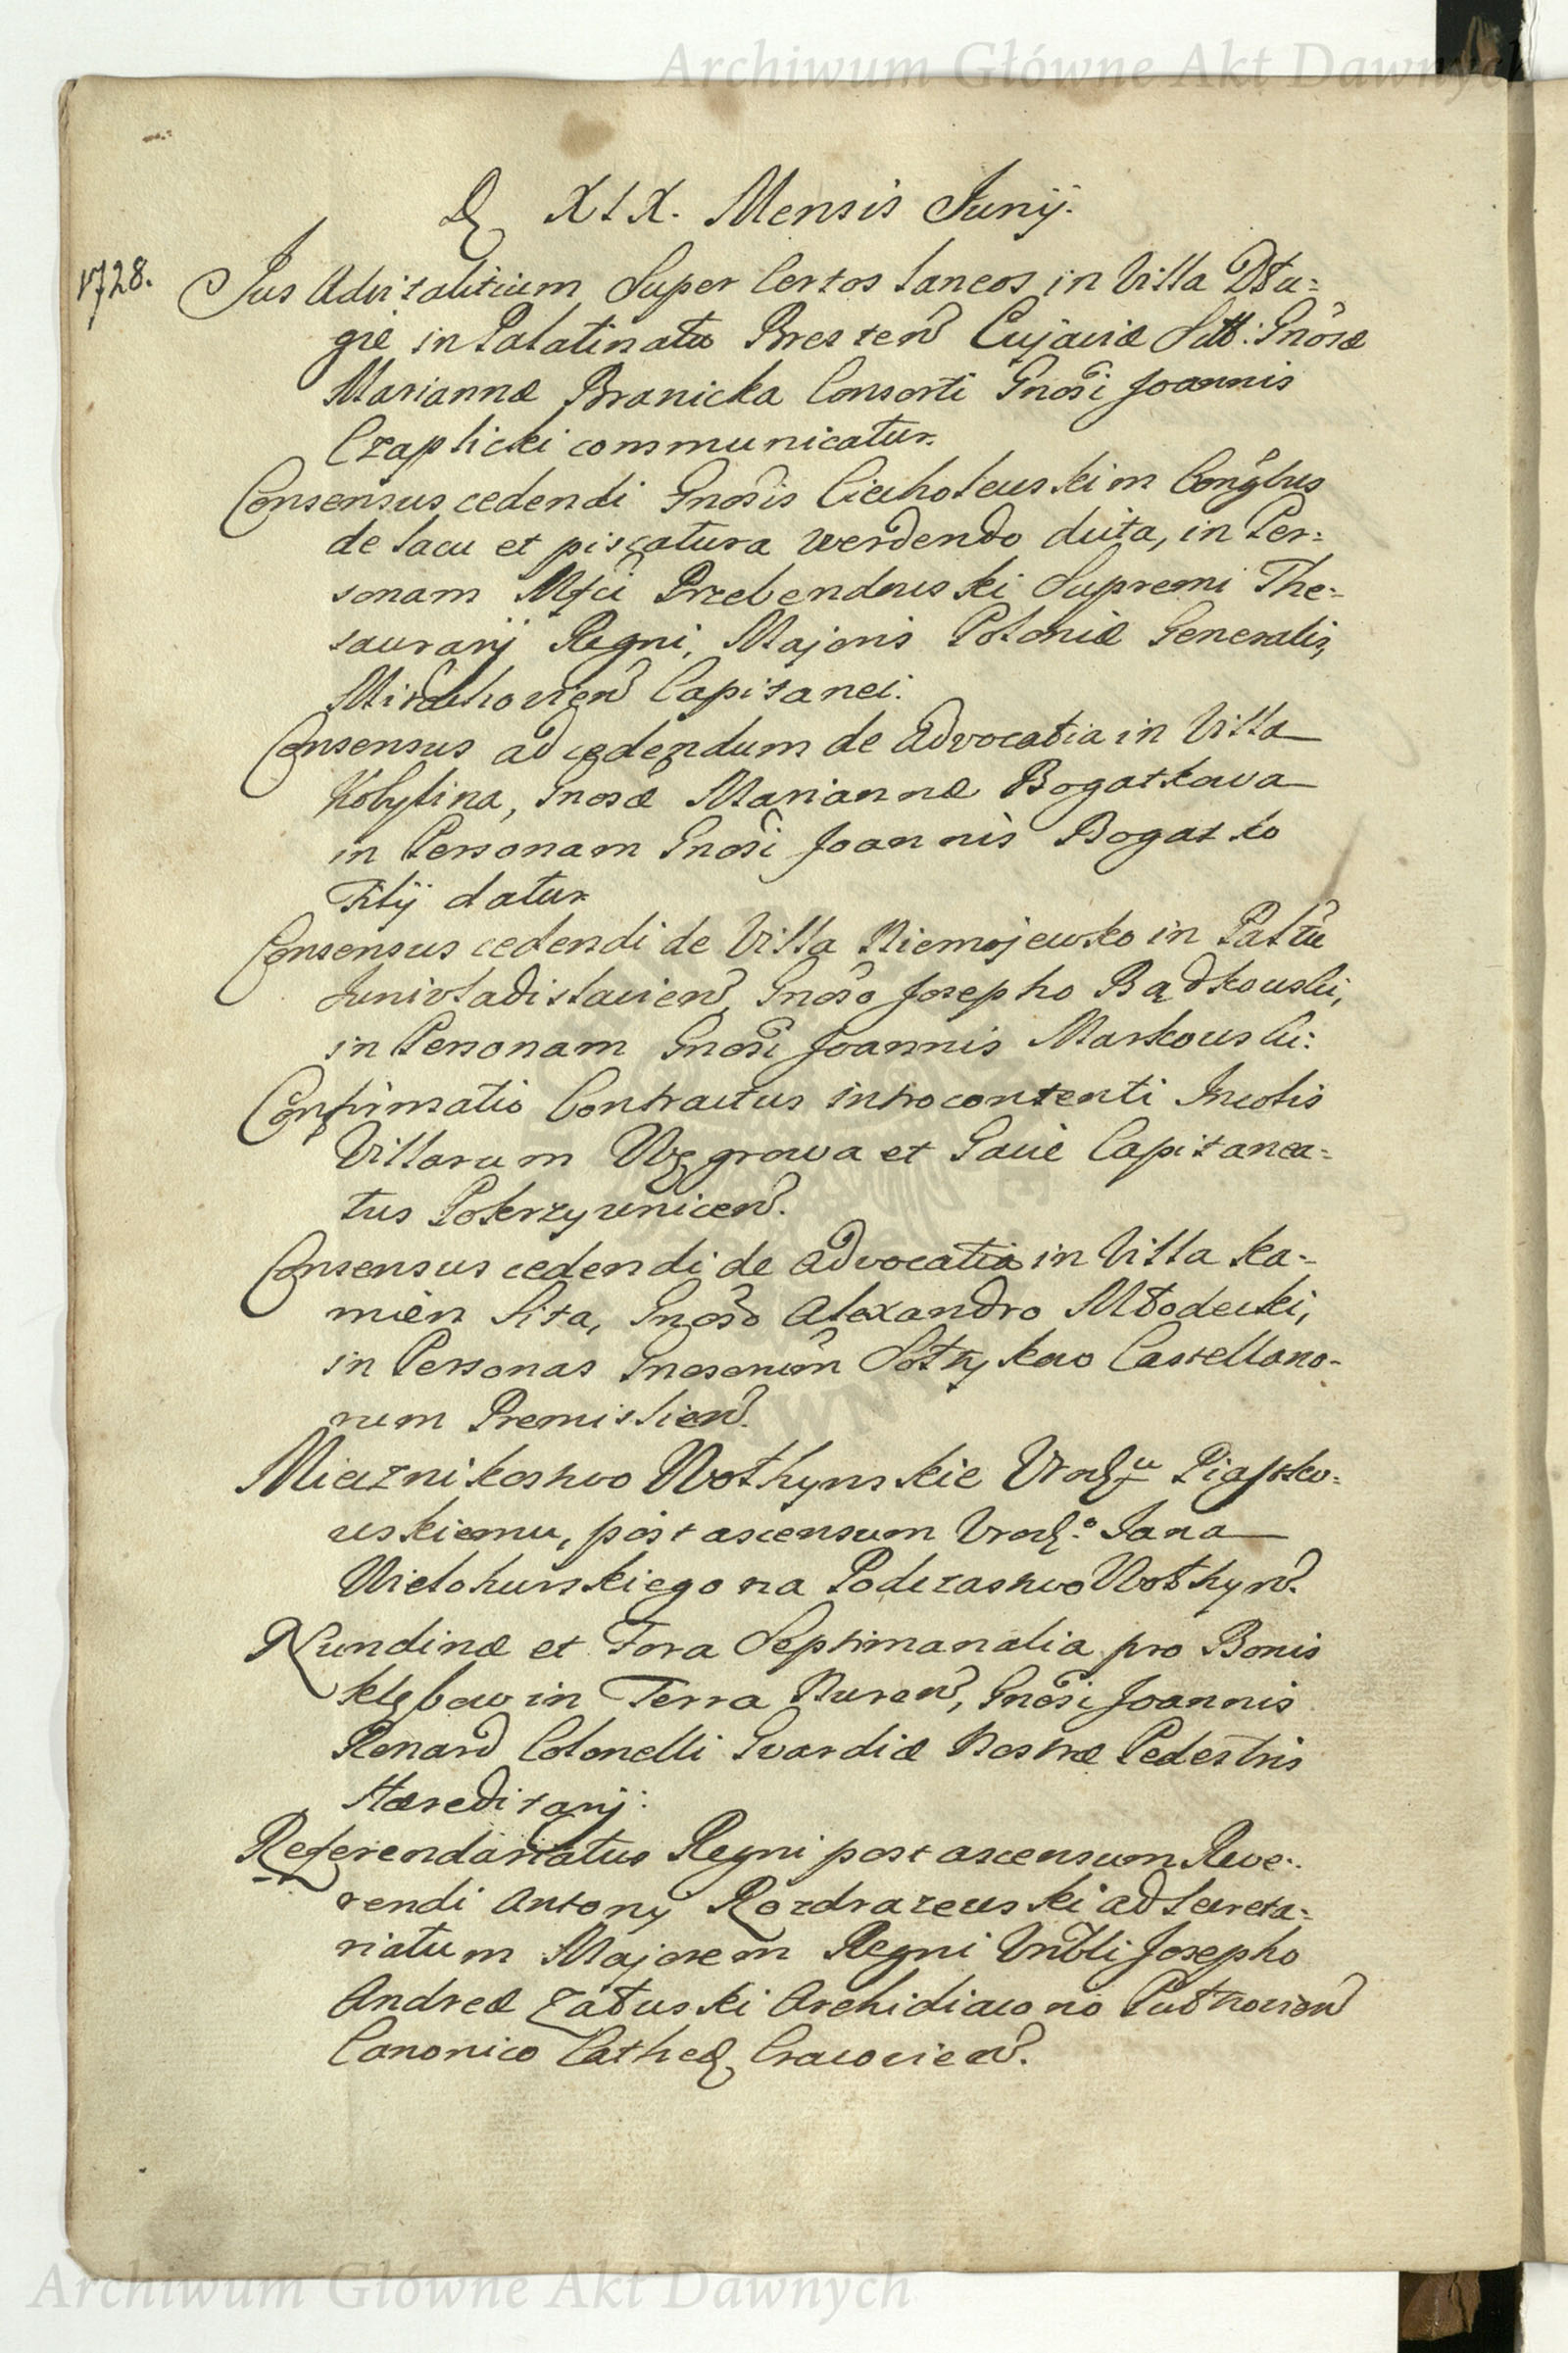 Archiwum Główne Akt Dawnych
D. XIX. Mensis Junij.
1728.
Jus Advitalitium Super Certos Laneos in Villa Dłu=
gie in Palatinatu Bresten Cujaviæ Sitt: Gnosæ
Mariannæ Branicka Consorti Gnosi Joannis
Czaplicki communicatur.
Consensus cedendi Gnosis Ciecholewskim Conglbus
de Lacu et piscatura Werdendo dicta, in Per=
sonam Mfci Przebendowski Supremi The=
saurarij Regni, Majoris Poloniæ Generalis,
Mirachovien Capitanei.
Consensus ad cedendum de Advocatia in Villa
Kobylina, Gnosæ Mariannæ Bogatkowa
in Personam Gnosi Joannis Bogatko
Filij datur.
Consensus cedendi de Villa Niemojewko in Paltu
Junivladislavien, Gnoso Josepho Bądkowski,
in Personam Gnosi Joannis Markowski:
Confirmatio Contractus introcontenti Incolis
Villarum Węgrowa et Gaue Capitanea=
tus Pokrzywnicen.
Consensus cedendi de Advocatia in Villa Ka=
mien Sita, Gnoso Alexandro Młodecki,
in Personas Gnosorum Sołtykow Castellano=
rum Premislien.
Miecznikostwo Wołhynskie Urodzu Piąsko=
wskiemu, post ascensum Urodz.o Jana
Wielohurskiego na Podczastwo Wołhyn.
Nundinæ et Fora Septimanalia pro Bonis
Klębow in Terra Nuren, Gnosi Joannis
Renard Colonelli Gvardiæ Nostræ Pedestris
Hæreditarij:
Referendariatus Regni post ascensum Reve=
rendi Antonij Rozdrazewski ad Secreta=
riatum Majorem Regni Vnbli Josepho
Andreæ Załuski Archidiacono Pułtovien
Canonico Cathed. Cracovien.
Archiwum Główne Akt Dawnych